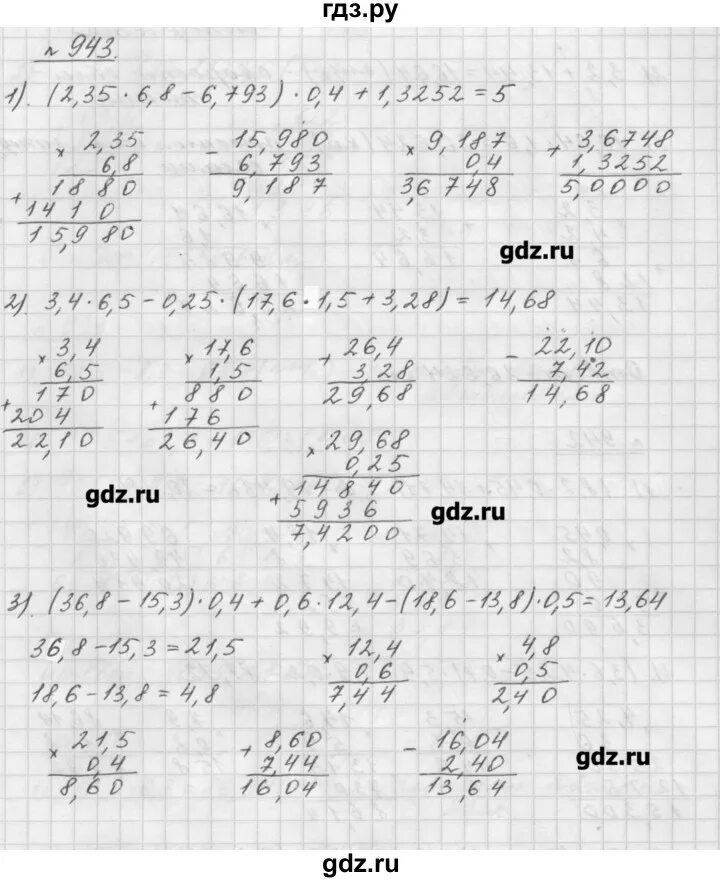 гдз.ру
№ 943.
1). (2,35 · 6,8 − 6,793) · 0,4 + 1,3252 = 5
× 2,35
6,8
+ 1880
1410
15,980
− 15,980
6,793
9,187
× 9,187
0,4
3,6748
+ 3,6748
1,3252
5,0000
gdz.ru
2). 3,4 · 6,5 − 0,25 · (17,6 · 1,5 + 3,28) = 14,68
× 3,4
6,5
+ 170
204
22,10
× 17,6
1,5
+ 880
176
26,40
+ 26,4
3,28
29,68
− 22,10
7,42
14,68
× 29,68
0,25
+ 14840
5936
7,4200
gdz.ru
gdz.ru
3). (36,8 − 15,3) · 0,4 + 0,6 · 12,4 − (18,6 − 13,8) · 0,5 = 13,64
36,8 − 15,3 = 21,5
18,6 − 13,8 = 4,8
× 12,4
0,6
7,44
× 4,8
0,5
2,40
× 21,5
0,4
8,60
+ 8,60
7,44
16,04
− 16,04
2,40
13,64
gdz.ru
gdz.ru